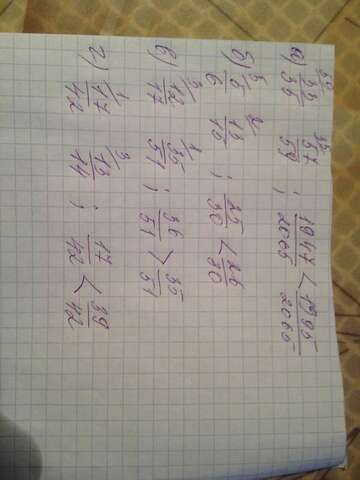 а) ⁵⁹ 33/35 ³⁵ 57/59 ; 1947/2065 < 1995/2065
б) ⁵ 5/6 ² 13/15 ; 25/30 < 26/30
в) ³ 12/17 ¹ 35/51 ; 36/51 > 35/51
г) ¹ 17/42 ³ 13/14 ; 17/42 < 39/42